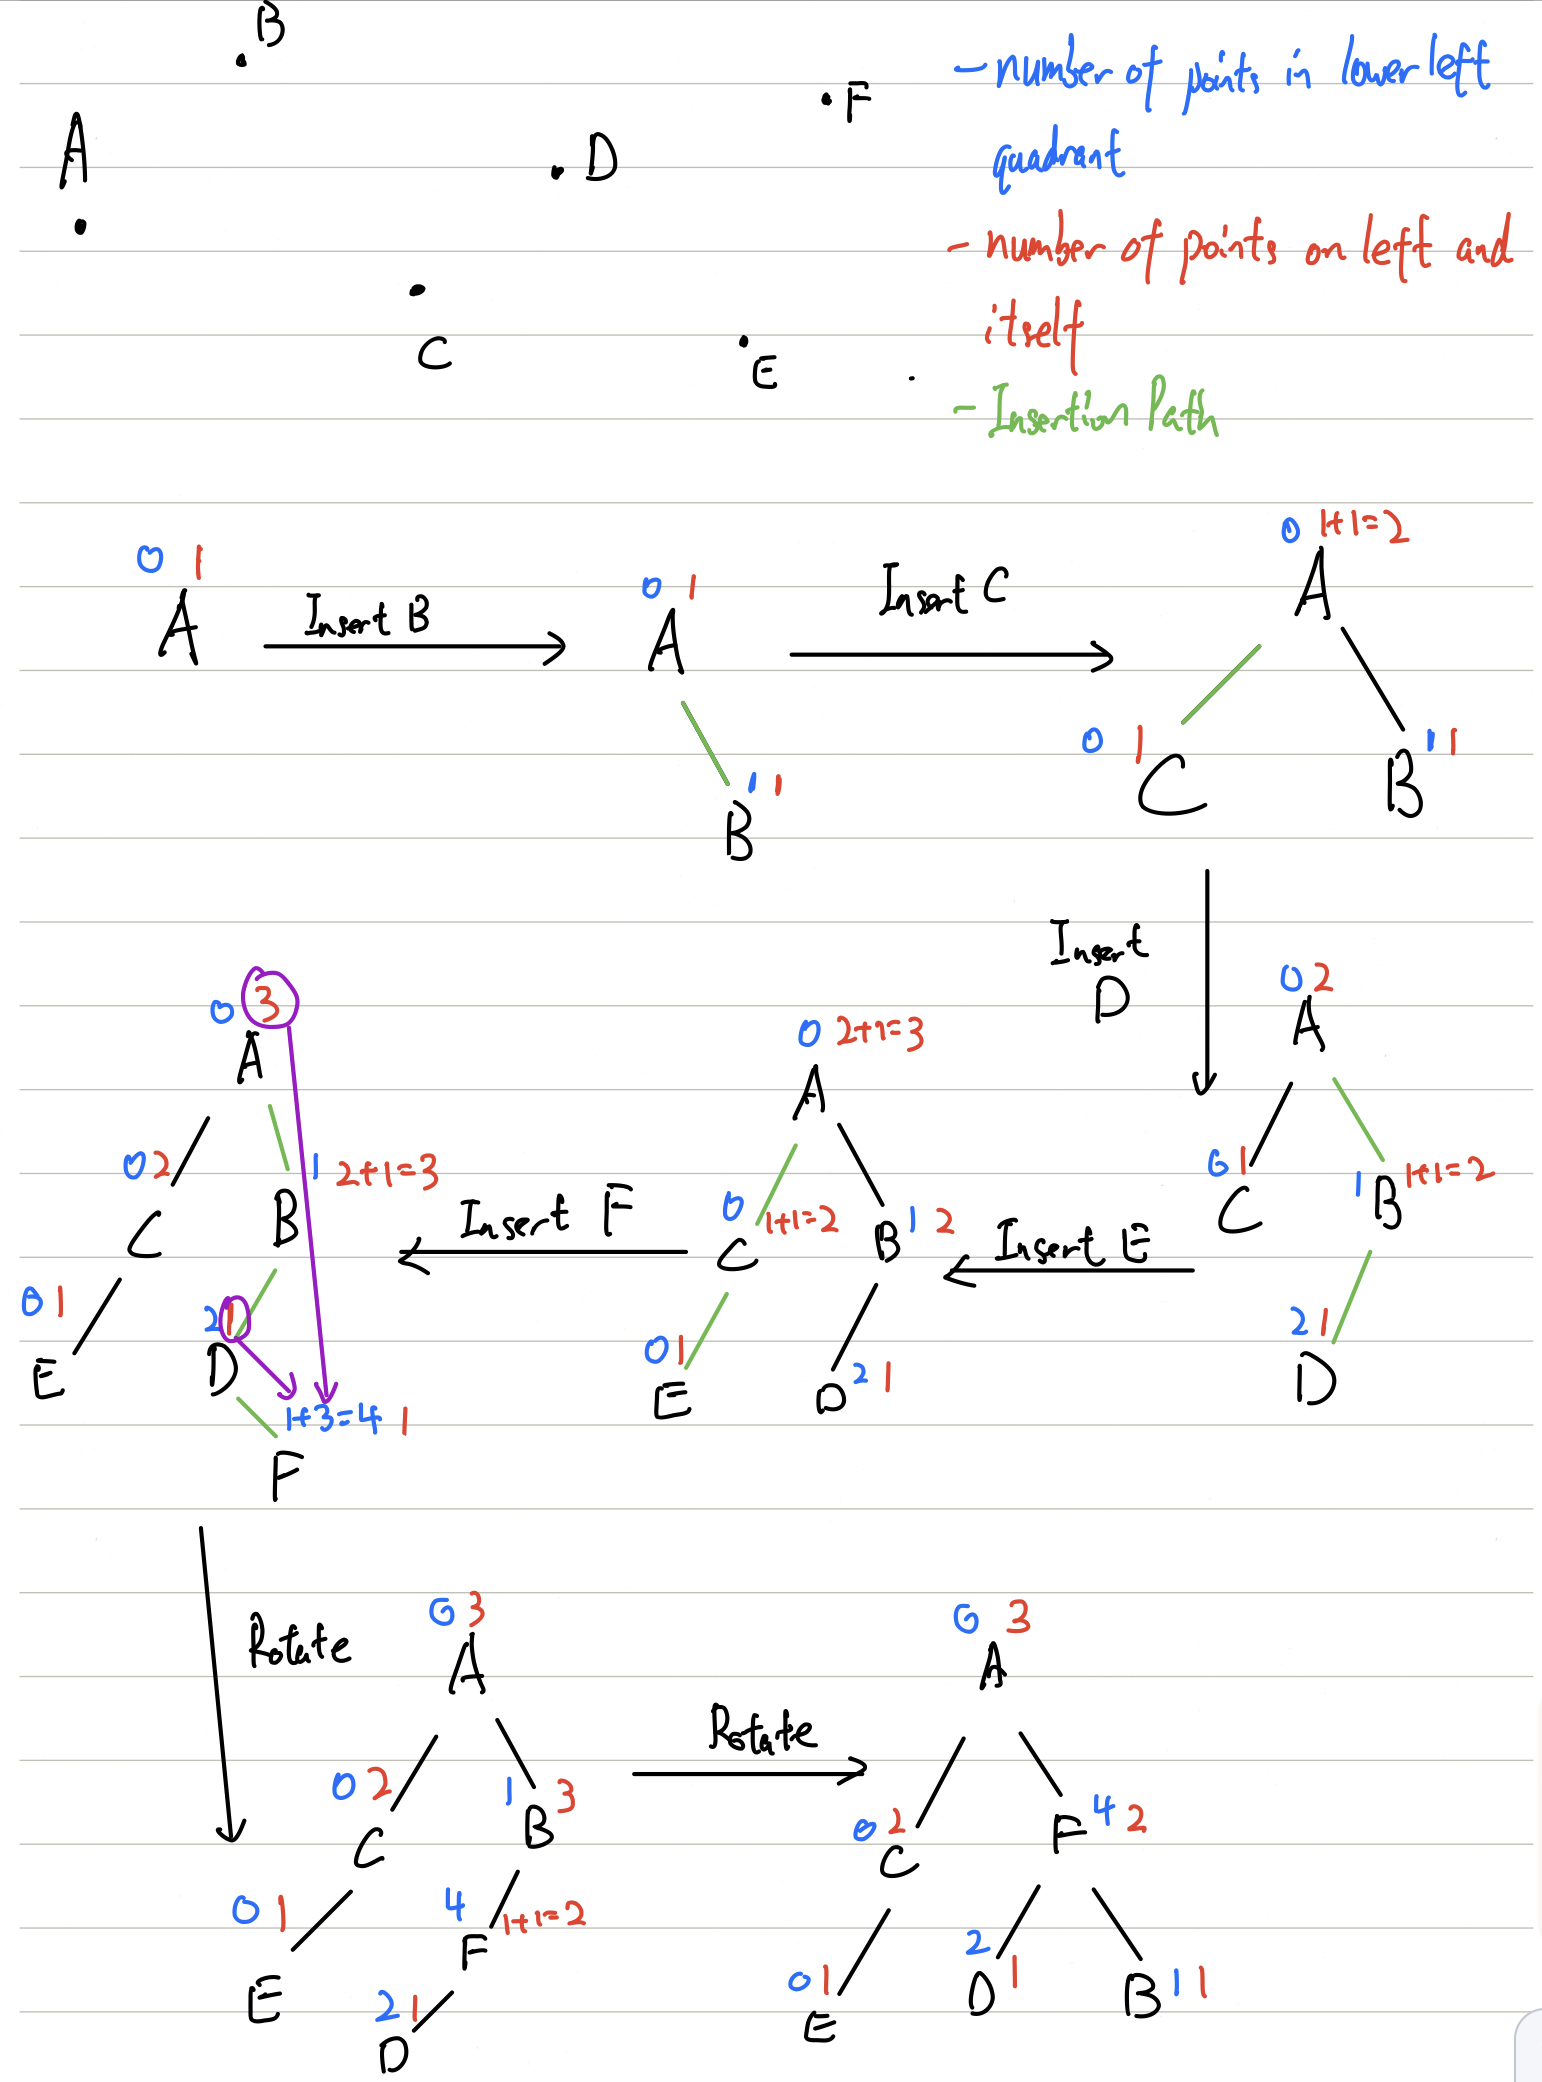 B
- number of points in lower left
quadrant
F
A
D
- number of points on left and
itself
C
E
- Insertion Path
0 1
A
Insert B
0 1
A
1 1
B
Insert C
0 1+1=2
A
0 1
C
1 1
B
Insert
D
0 2
A
0 1
C
1 B 1+1=2
2 1
D
Insert E
0 2+1=3
A
0 1+1=2
C
B 1 2
0 1
E
D 2 1
Insert F
0 3
A
0 2
C
1 2+1=3
B
0 1
E
2 1
D
1+3=4 1
F
Rotate
0 3
A
0 2
C
1 3
B
0 1
E
4 1+1=2
F
2 1
D
Rotate
0 3
A
0 2
C
F 4 2
0 1
E
2
D 1
B 1 1